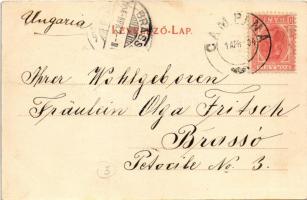 Ungaria
LEVELEZŐ-LAP.
CAMPANA
Ihrer Wohlgeboren
Fräulein Olga Fritsch
Brassó
No. 3.